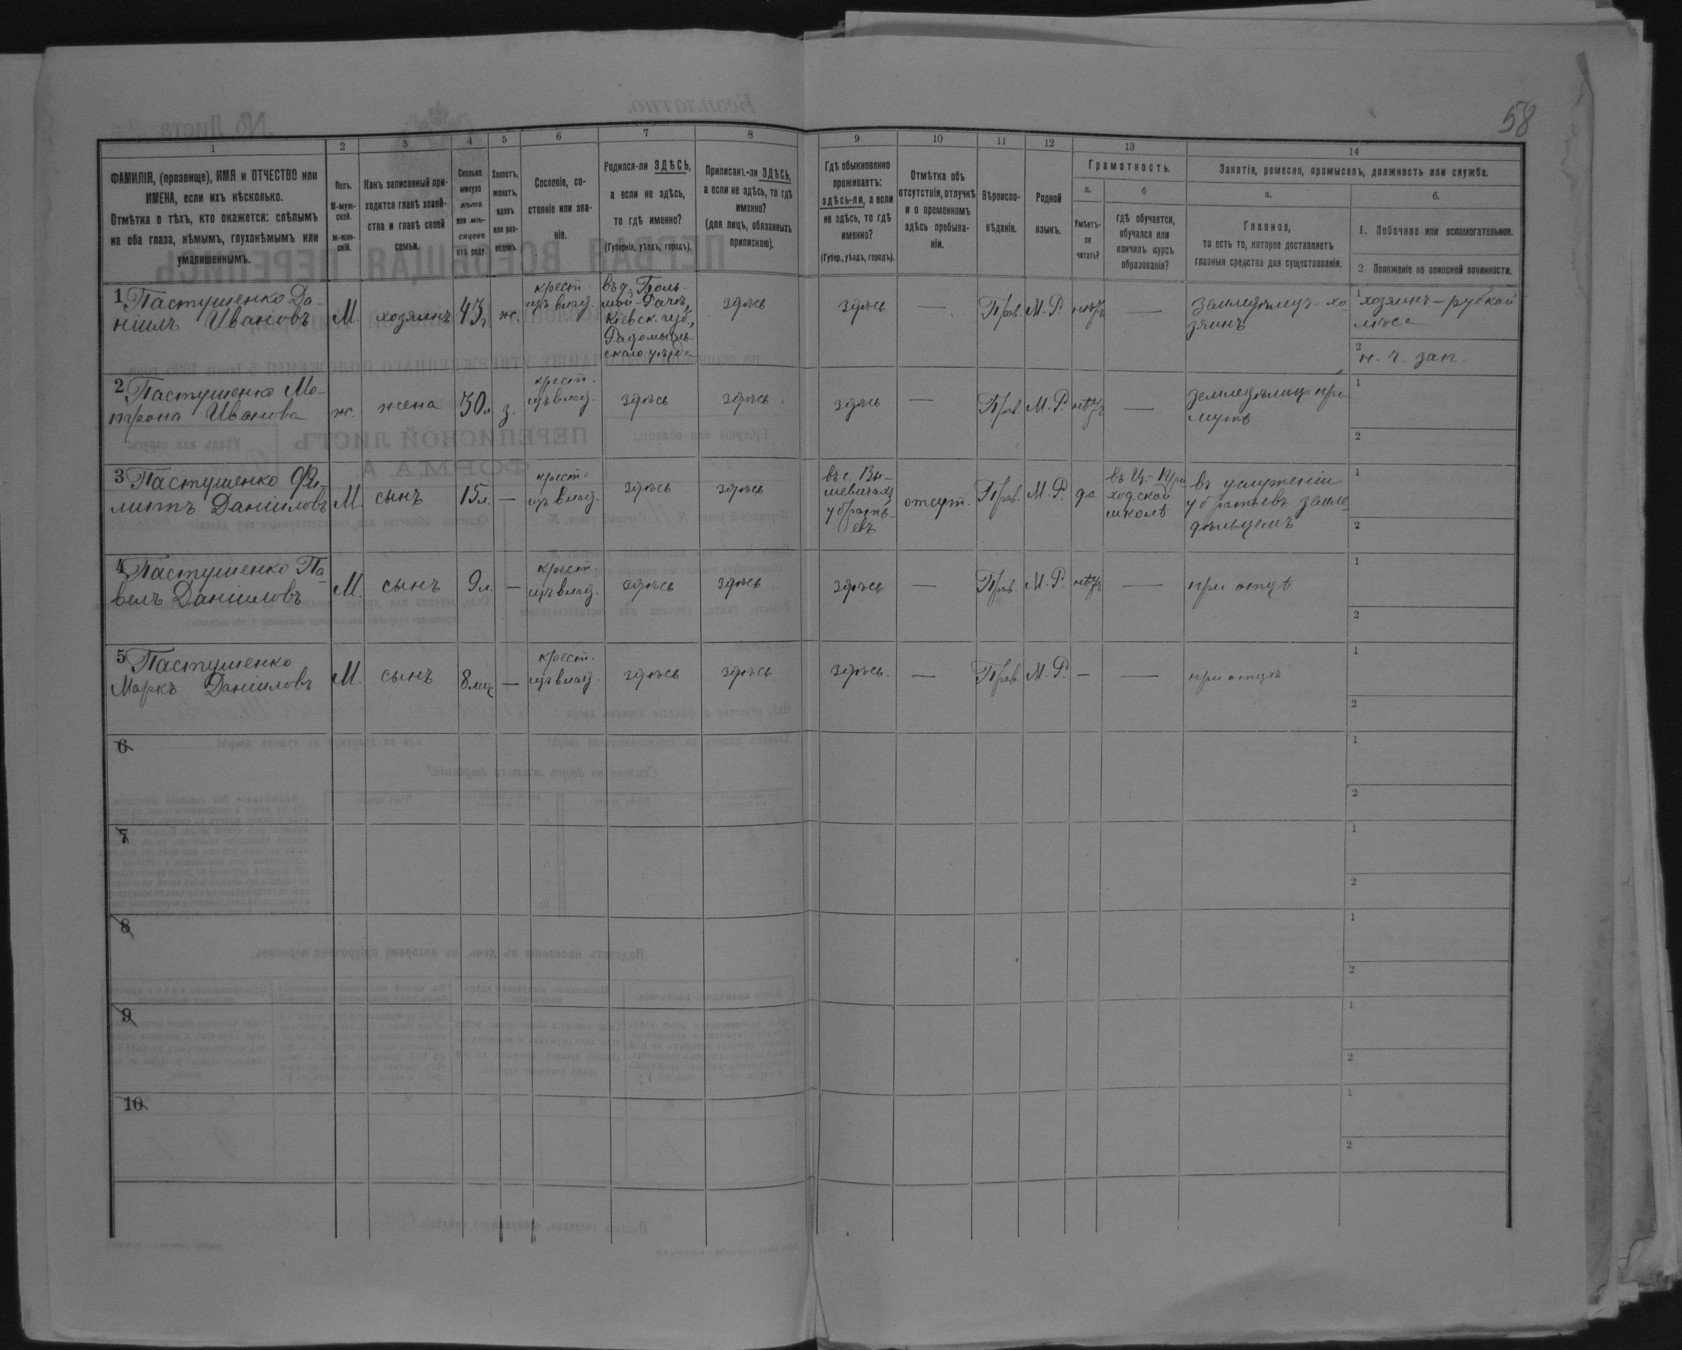 58
1 2 3 4 5 6 7 8 9 10 11 12 13 14
ФАМИЛІЯ, (прозвище), ИМЯ и ОТЧЕСТВО или
ИМЕНА, если ихъ нѣсколько.
Отмѣтка о тѣхъ, кто окажется: слѣпымъ
на оба глаза, нѣмымъ, глухонѣмымъ или
умалишеннымъ.
Полъ.
М-муж-
ской.
ж-жен-
скій.
Какъ записанный при-
ходится главѣ хозяй-
ства и главѣ своей
семьи.
Сколько
минуло
лѣтъ
или мѣ-
сяцевъ
отъ роду.
Холостъ,
женатъ,
вдовъ
или раз-
веденъ.
Сословіе, со-
стояніе или зва-
ніе.
Родился-ли ЗДѢСЬ,
а если не здѣсь,
то гдѣ именно?
(Губернія, уѣздъ, городъ).
Приписанъ-ли ЗДѢСЬ,
а если не здѣсь, то гдѣ
именно?
(для лицъ, обязанныхъ
припискою).
Гдѣ обыкновенно
проживаетъ:
здѣсь-ли, а если
не здѣсь, то гдѣ
именно?
(Губер., уѣздъ, городъ).
Отмѣтка объ
отсутствіи, отлучкѣ
и о временномъ
здѣсь пребыва-
ніи.
Вѣроиспо-
вѣданіе.
Родной
языкъ.
Грамотность.
а.
Умѣетъ-
ли
читать?
б
гдѣ обучается,
обучался или
кончилъ курсъ
образованія?
Занятіе, ремесло, промыселъ, должность или служба.
а.
Главное,
то есть то, которое доставляетъ
главныя средства для существованія.
б.
1. Побочное или вспомогательное.
2 Положеніе по воинской повинности.
1 Пастушенко Да-
ніилъ Ивановъ
М. хозяинъ 43г. ж.
крест.
изъ влад.
въ д. Боль-
Кіевск. губ.,
Радомысль-
скаго уѣзда
здѣсь здѣсь — Прав. М. Р. нѣтъ —
Земледѣлецъ-хо
зяинъ
1 хозяинъ-рубкой
лѣса
2 н. ч. зап.
2 Пастушенко Мо-
трона Иванова
ж. жена 30л. з.
крест.
изъ влад.
здѣсь здѣсь здѣсь — Прав. М. Р. нѣтъ —
земледѣлица при
мужѣ
1
2
3 Пастушенко Фи-
липъ Даніиловъ
М. сынъ 15л. —
крест.
изъ влад.
здѣсь здѣсь
въ с. Вы-
шевичахъ
у братъ-
евъ
отсут. Прав. М. Р. да
въ Ц.-При
ходской
школѣ
въ услуженіи
у братьевъ земле
дѣльцемъ
1
2
4 Пастушенко Па
велъ Даніиловъ
М. сынъ 9л. —
крест.
изъ влад.
здѣсь здѣсь здѣсь — Прав. М. Р. нѣтъ — при отцѣ
1
2
5 Пастушенко
Маркъ Даніиловъ
М. сынъ 8 мѣс —
крест.
изъ влад.
здѣсь здѣсь здѣсь. — Прав. М. Р. — — при отцѣ
1
2
6
1
2
7
1
2
8
1
2
9
1
2
10
1
2